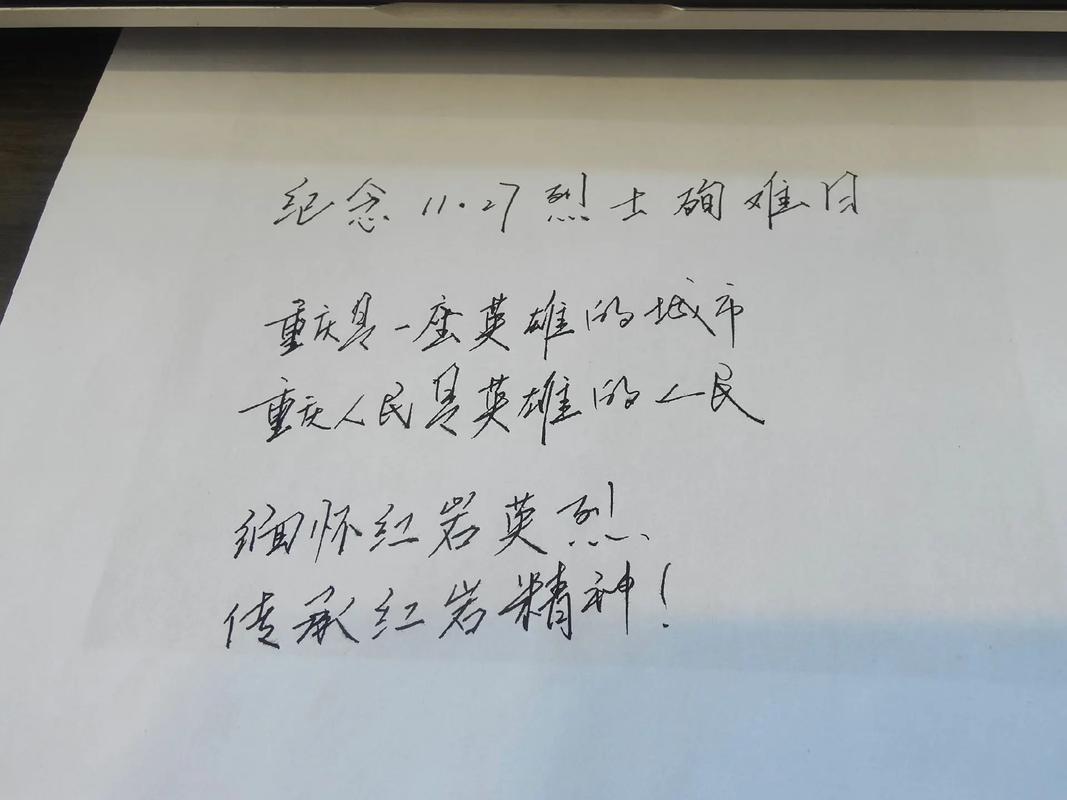 纪念11.27烈士殉难日
重庆是一座英雄的城市
重庆人民是英雄的人民
缅怀红岩英烈
传承红岩精神！